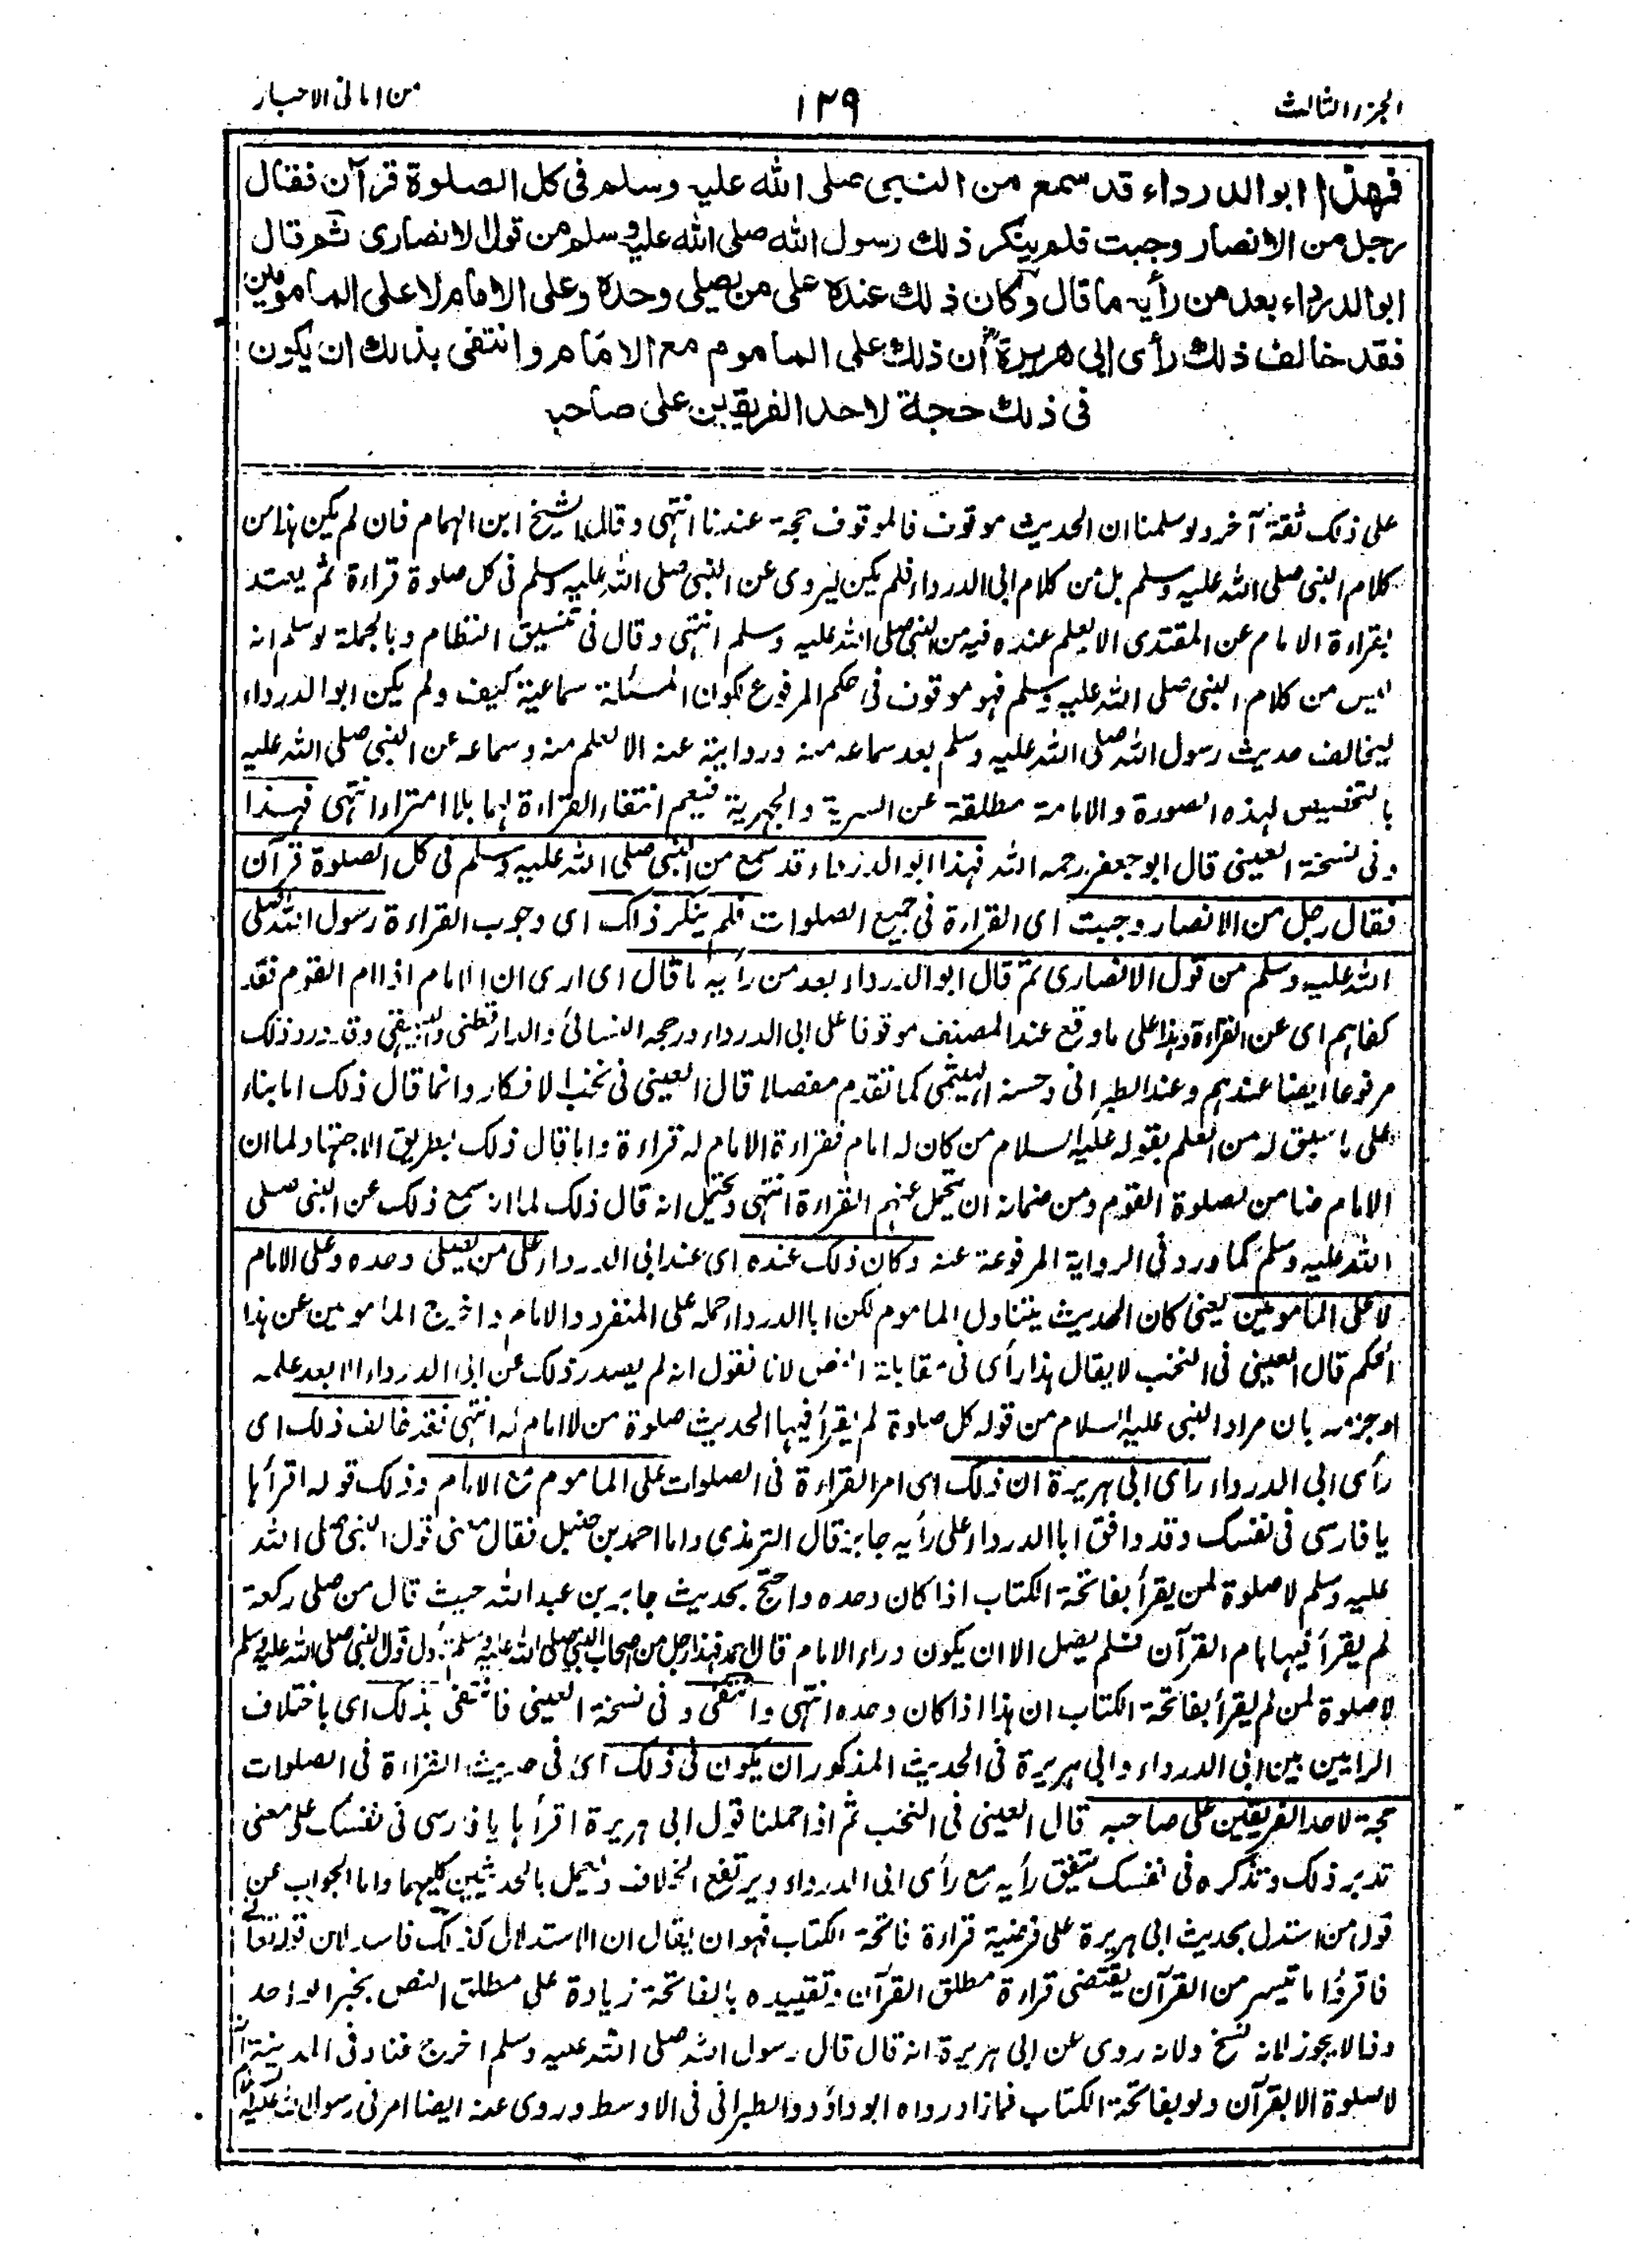 الجزء الثالث
١٢٩
من امانى الاحبار
فهذا ابو الدرداء قد سمع من النبى صلى الله عليه وسلم فى كل الصلوة قرآن فقال
رجل من الانصار وجبت فلم ينكر ذلك رسول الله صلى الله عليه وسلم من قول الانصارى ثم قال
ابو الدرداء بعد من رأيه ما قال وكان ذلك عنده على من يصلى وحده وعلى الامام لا على المامومين
فقد خالف ذلك رأى ابى هريرة أن ذلك على الماموم مع الامام وانتفى بذلك ان يكون
فى ذلك حجة لاحد الفريقين على صاحبه
على ذلك ثقة آخر ولو سلمنا ان الحديث موقوف فالموقوف حجة عندنا انتهى وقال الشيخ ابن الهمام فان لم يكن هذا من
كلام النبى صلى الله عليه وسلم بل من كلام ابى الدرداء فلم يكن ليروى عن النبى صلى الله عليه وسلم فى كل صلوة قراءة ثم يعتد
بقراءة الامام عن المقتدى الا لعلم عنده فيه من النبى صلى الله عليه وسلم انتهى وقال فى تنسيق النظام وبالجملة لو سلم انه
ليس من كلام النبى صلى الله عليه وسلم فهو موقوف فى حكم المرفوع لكون المسئلة سماعية كيف ولم يكن ابو الدرداء
ليخالف حديث رسول الله صلى الله عليه وسلم بعد سماعه منه وروايته عنه الا لعلم منه وسماعه عن النبى صلى الله عليه
بالتخصيص لهذه الصورة والامامة مطلقة عن السرية والجهرية فيعم انتفاء القراءة لهما بلا امتراء انتهى فهذا
وفى نسخة العينى قال ابو جعفر رحمه الله فهذا ابو الدرداء قد سمع من النبى صلى الله عليه وسلم فى كل الصلوة قرآن
فقال رجل من الانصار وجبت اى القراءة فى جميع الصلوات فلم ينكر ذلك اى وجوب القراءة رسول الله صلى
الله عليه وسلم من قول الانصارى ثم قال ابو الدرداء بعد من رأيه ما قال اى ارى ان الامام اذا ام القوم فقد
كفاهم اى عن القراءة وهذا على ما وقع عند المصنف موقوفا على ابى الدرداء ورجحه النسائى والدارقطنى والبيهقى وقد ورد ذلك
مرفوعا ايضا عندهم وعند الطبرانى وحسنه الهيثمى كما تقدم مفصلا قال العينى فى نخب الافكار وانما قال ذلك اما بناء
على ما سبق له من العلم بقوله عليه السلام من كان له امام فقراءة الامام له قراءة واما قال ذلك بطريق الاجتهاد لما ان
الامام ضامن لصلوة القوم ومن ضمانه ان يتحمل عنهم القراءة انتهى ويحتمل انه قال ذلك لما انه سمع ذلك عن النبى صلى
الله عليه وسلم كما ورد فى الرواية المرفوعة عنه وكان ذلك عنده اى عند ابى الدرداء على من يصلى وحده وعلى الامام
لا على المامومين يعنى كان الحديث يتناول الماموم لكن ابا الدرداء حمله على المنفرد والامام واخرج المامومين عن هذا
الحكم قال العينى فى النخب لا يقال هذا رأى فى مقابلة النص لانا نقول انه لم يصدر ذلك عن ابى الدرداء الا بعد علمه
او جزمه بان مراد النبى عليه السلام من قوله كل صلوة لم يقرأ فيها الحديث صلوة من لا امام له انتهى فقد خالف ذلك اى
رأى ابى الدرداء رأى ابى هريرة ان ذلك اى امر القراءة فى الصلوات على الماموم مع الامام وذلك قوله اقرأ بها
يا فارسى فى نفسك وقد وافق ابا الدرداء على رأيه جابر قال الترمذى واما احمد بن حنبل فقال معنى قول النبى صلى الله
عليه وسلم لا صلوة لمن يقرأ بفاتحة الكتاب اذا كان وحده واحتج بحديث جابر بن عبد الله حيث قال من صلى ركعة
لم يقرأ فيها بام القرآن فلم يصل الا ان يكون وراء الامام قال احمد فهذا رجل من اصحاب النبى صلى الله عليه وسلم تأول قول النبى صلى الله عليه وسلم
لا صلوة لمن لم يقرأ بفاتحة الكتاب ان هذا اذا كان وحده انتهى وانتفى وفى نسخة العينى فانتفى بذلك اى باختلاف
الرايين بين ابى الدرداء وابى هريرة فى الحديث المذكور ان يكون فى ذلك اى فى حديث القراءة فى الصلوات
حجة لاحد الفريقين على صاحبه قال العينى فى النخب ثم اذا حملنا قول ابى هريرة اقرأ بها يا فارسى فى نفسك على معنى
تدبر ذلك وتذكره فى نفسك يتفق رأيه مع رأى ابى الدرداء ويرتفع الخلاف ونعمل بالحديثين كليهما واما الجواب عن
قول من استدل بحديث ابى هريرة على فرضية قراءة فاتحة الكتاب فهو ان يقال ان الاستدلال كذلك فاسد لان قوله تعالى
فاقرؤا ما تيسر من القرآن يقتضى قراءة مطلق القرآن وتقييده بالفاتحة زيادة على مطلق النص بخبر الواحد
وذا لا يجوز لانه نسخ ولانه روى عن ابى هريرة انه قال قال رسول الله صلى الله عليه وسلم اخرج فناد فى المدينة انه
لا صلوة الا بقرآن ولو بفاتحة الكتاب فما زاد رواه ابو داؤد والطبرانى فى الاوسط وروى عنه ايضا امرنى رسول الله عليه